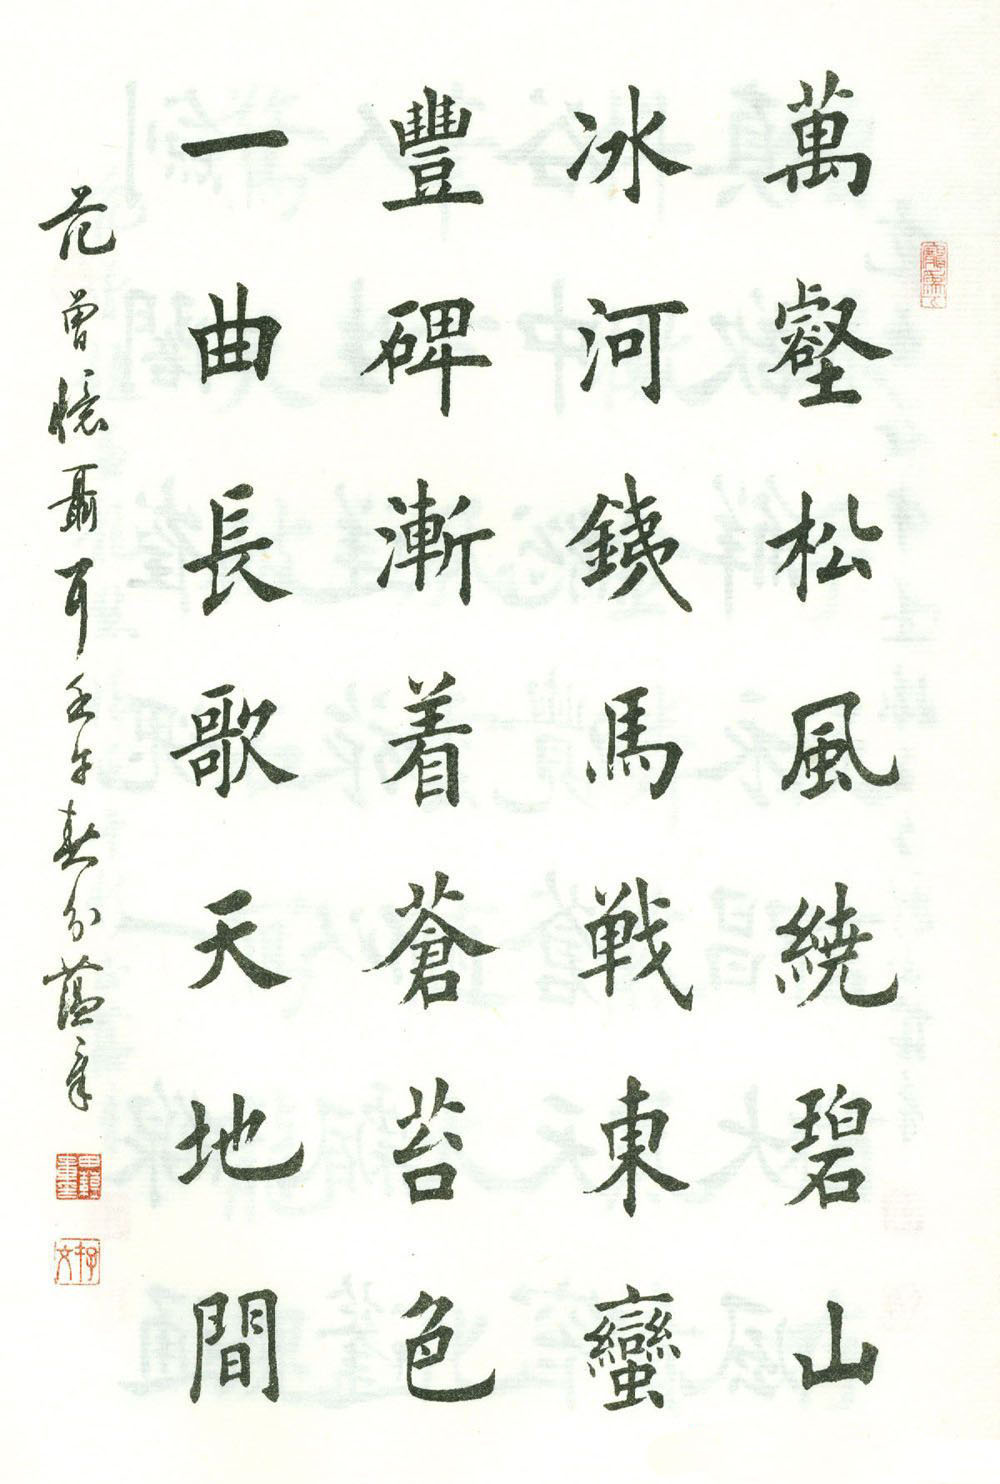 萬壑松風繞碧山
冰河銕馬戦東蠻
豐碑漸着蒼苔色
一曲長歌天地間
范曾憶聶耳壬午春分蘊章